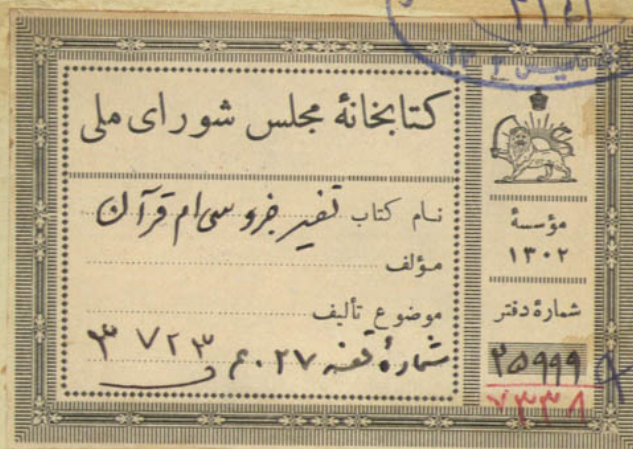 ۳۱۴۱
تأسیس ۱۳۰۲
کتابخانهٔ مجلس شورای ملی
نام کتاب تفسیر جزو سی‌ام قرآن
مؤلف
موضوع تألیف
شمارهٔ قفسه ۰۲۷ ۳۷۲۳
مؤسسهٔ
۱۳۰۲
شمارهٔ دفتر
۳۵۹۹۹
۷۳۳۸